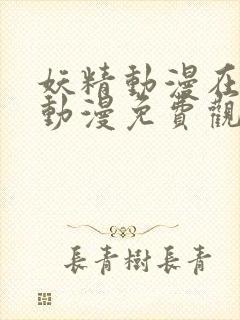 妖精動漫在
動漫免費觀
長青樹長青